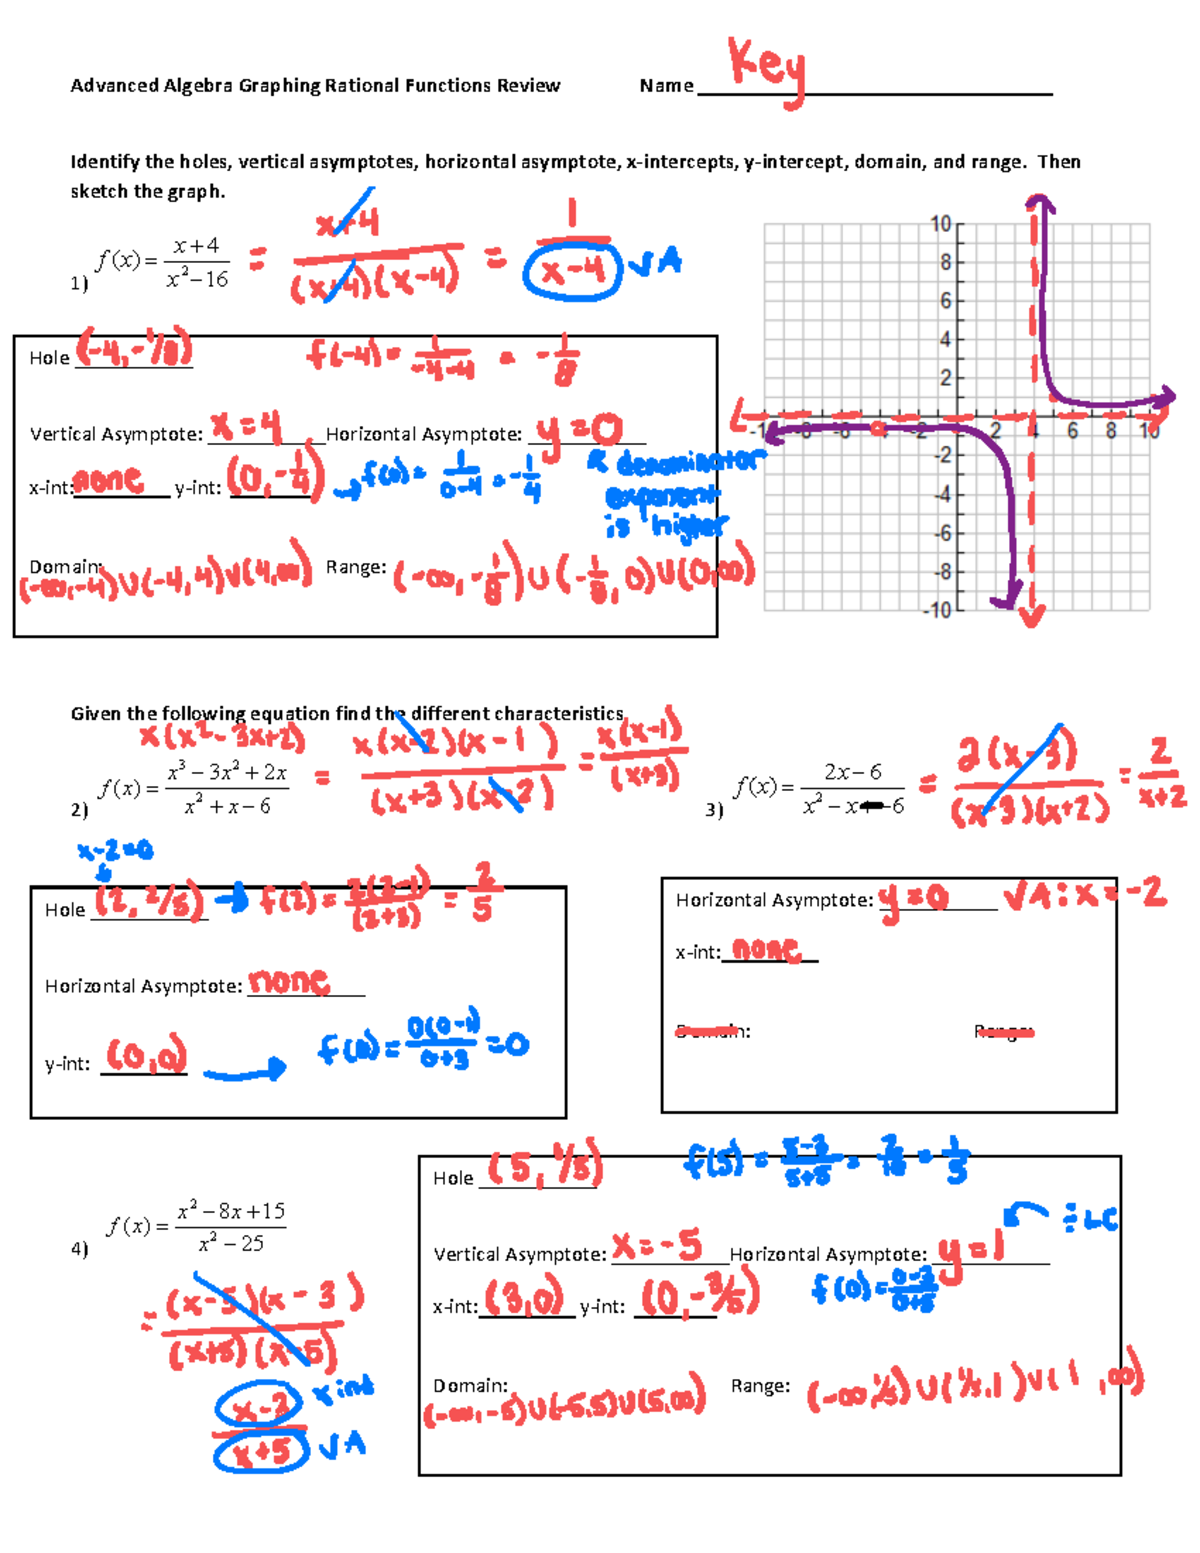 Key
Advanced Algebra Graphing Rational Functions Review Name
Identify the holes, vertical asymptotes, horizontal asymptote, x-intercepts, y-intercept, domain, and range. Then
sketch the graph.
1) f(x) = (x+4)/(x²−16) = (x+4)/((x+4)(x−4)) = 1/(x−4) VA
Hole (-4, -1/8) f(-4) = 1/(-4-4) = -1/8
Vertical Asymptote: x = 4 Horizontal Asymptote: y = 0
denominator exponent is higher
x-int: none y-int: (0, -1/4) → f(0) = 1/(0-4) = -1/4
Domain: (-∞,-4)∪(-4,4)∪(4,∞) Range: (-∞, -1/8)∪(-1/8, 0)∪(0,∞)
10
8
6
4
2
-2 2 4 6 8 10
-2
-4
-6
-8
-10
Given the following equation find the different characteristics
x(x²-3x+2)
2) f(x) = (x³−3x²+2x)/(x²+x−6) = x(x-2)(x-1)/((x+3)(x-2)) = x(x-1)/(x+3)
3) f(x) = (2x−6)/(x²−x−6) = 2(x-3)/((x-3)(x+2)) = 2/(x+2)
x-2=0
Hole (2, 2/5) → f(2) = 2(2-1)/(2+3) = 2/5
Horizontal Asymptote: none
y-int: (0,0) → f(0) = 0(0-1)/(0+3) = 0
Horizontal Asymptote: y = 0 VA: x = -2
x-int: none
Domain: Range:
4) f(x) = (x²−8x+15)/(x²−25)
= (x-5)(x-3)/((x+5)(x-5))
x int
x+5 VA
Hole (5, 1/5) f(5) = = 2/10 = 1/5
Vertical Asymptote: x = -5 Horizontal Asymptote: y = 1 ÷ LC
x-int: (3,0) y-int: (0, -3/5) f(0) = (0-3)/(0+5)
Domain: (-∞,-5)∪(-5,5)∪(5,∞) Range: (-∞,1/5)∪(1/5,1)∪(1,∞)